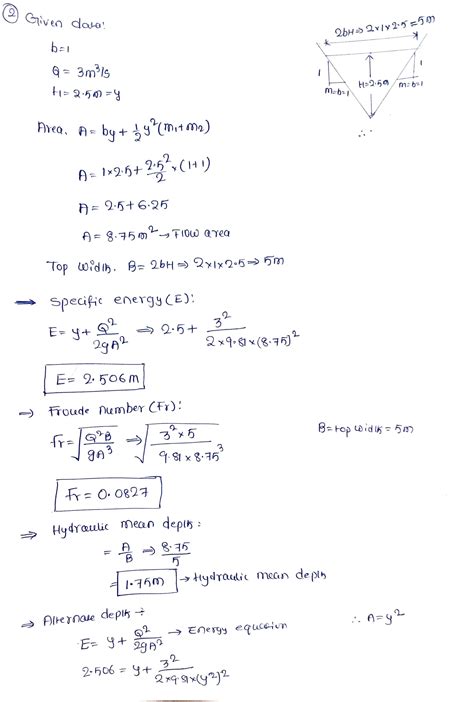 ② Given data:
b=1
Q = 3m³/s
H = 2.5m = y
2bH ⇒ 2×1×2.5 = 5m
1
1
m=b=1
H=2.5m
m=b=1
∴
Area. A = by + 1/2 y² (m1+m2)
A = 1×2.5 + 2.5²/2 × (1+1)
A = 2.5 + 6.25
A = 8.75m² → Flow area
Top width. B = 2bH ⇒ 2×1×2.5 ⇒ 5m
→ Specific energy (E):
E = y + Q²/2gA² ⇒ 2.5 + 3²/2×9.81×(8.75)²
E = 2.506m
→ Froude number (Fr):
Fr = √(Q²B/gA³) ⇒ √(3²×5/9.81×8.75³)
B = top width = 5m
Fr = 0.0827
⇒ Hydraulic mean depth:
= A/B ⇒ 8.75/5
= 1.75m → Hydraulic mean depth
⇒ Alternate depth ÷
E = y + Q²/2gA² → Energy equation
∴ A = y²
2.506 = y + 3²/2×9.81×(y²)²